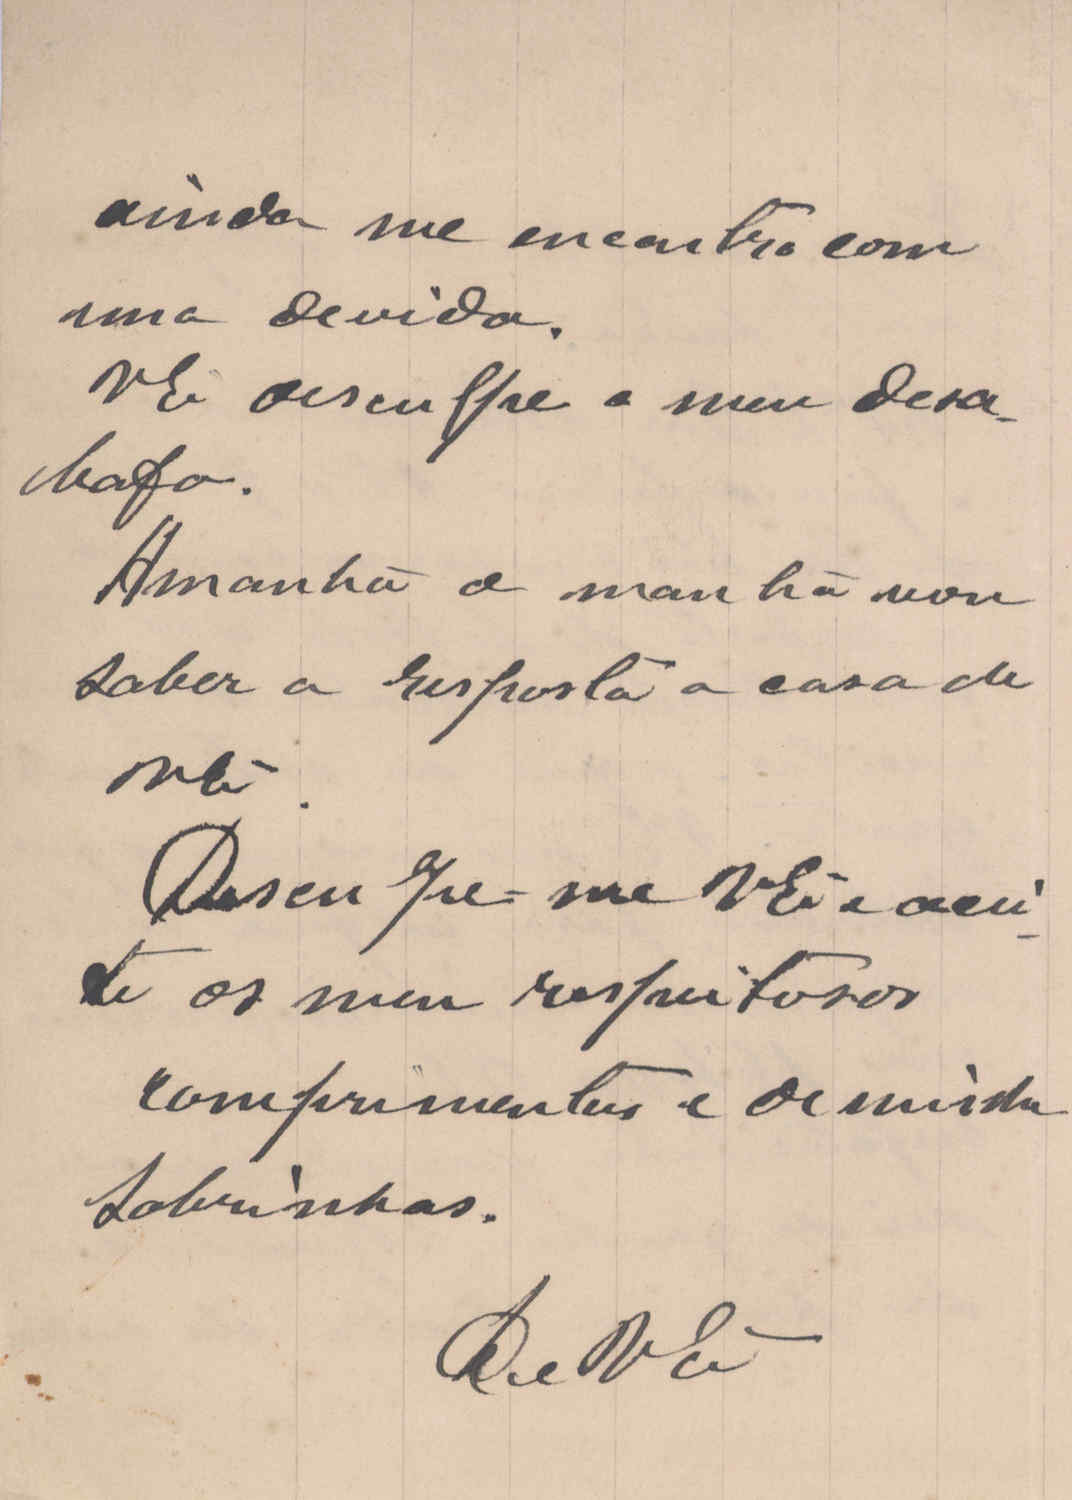 ainda me encontro com
uma devida.
VEª desculpe o meu desa-
bafo.
Amanhã de manhã vou
saber a resposta a casa de
VEª.
Desculpe-me VEª e acei-
te os meu respeitosos
comprimentos e de minha
sobrinhas.
De VEª